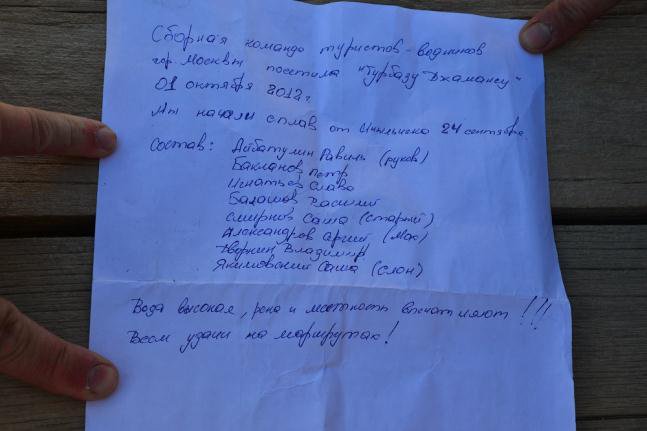 Сборная команда туристов-водников
гор. Москвы посетила "Турбазу Джамансу"
01 октября 2012 г.
Мы начали сплав от Инильчека 24 сентября.
Состав: Айбатулин Равиль (руков)
Бакланов Петр
Игнатьев Слава
Балашов Василий
Смирнов Саша (Старый)
Александров Сергей (Мос)
Владимир
Якимовский Саша (слон)
Вода высокая, река и местность впечатляют!!!
Всем удачи на маршрутах!